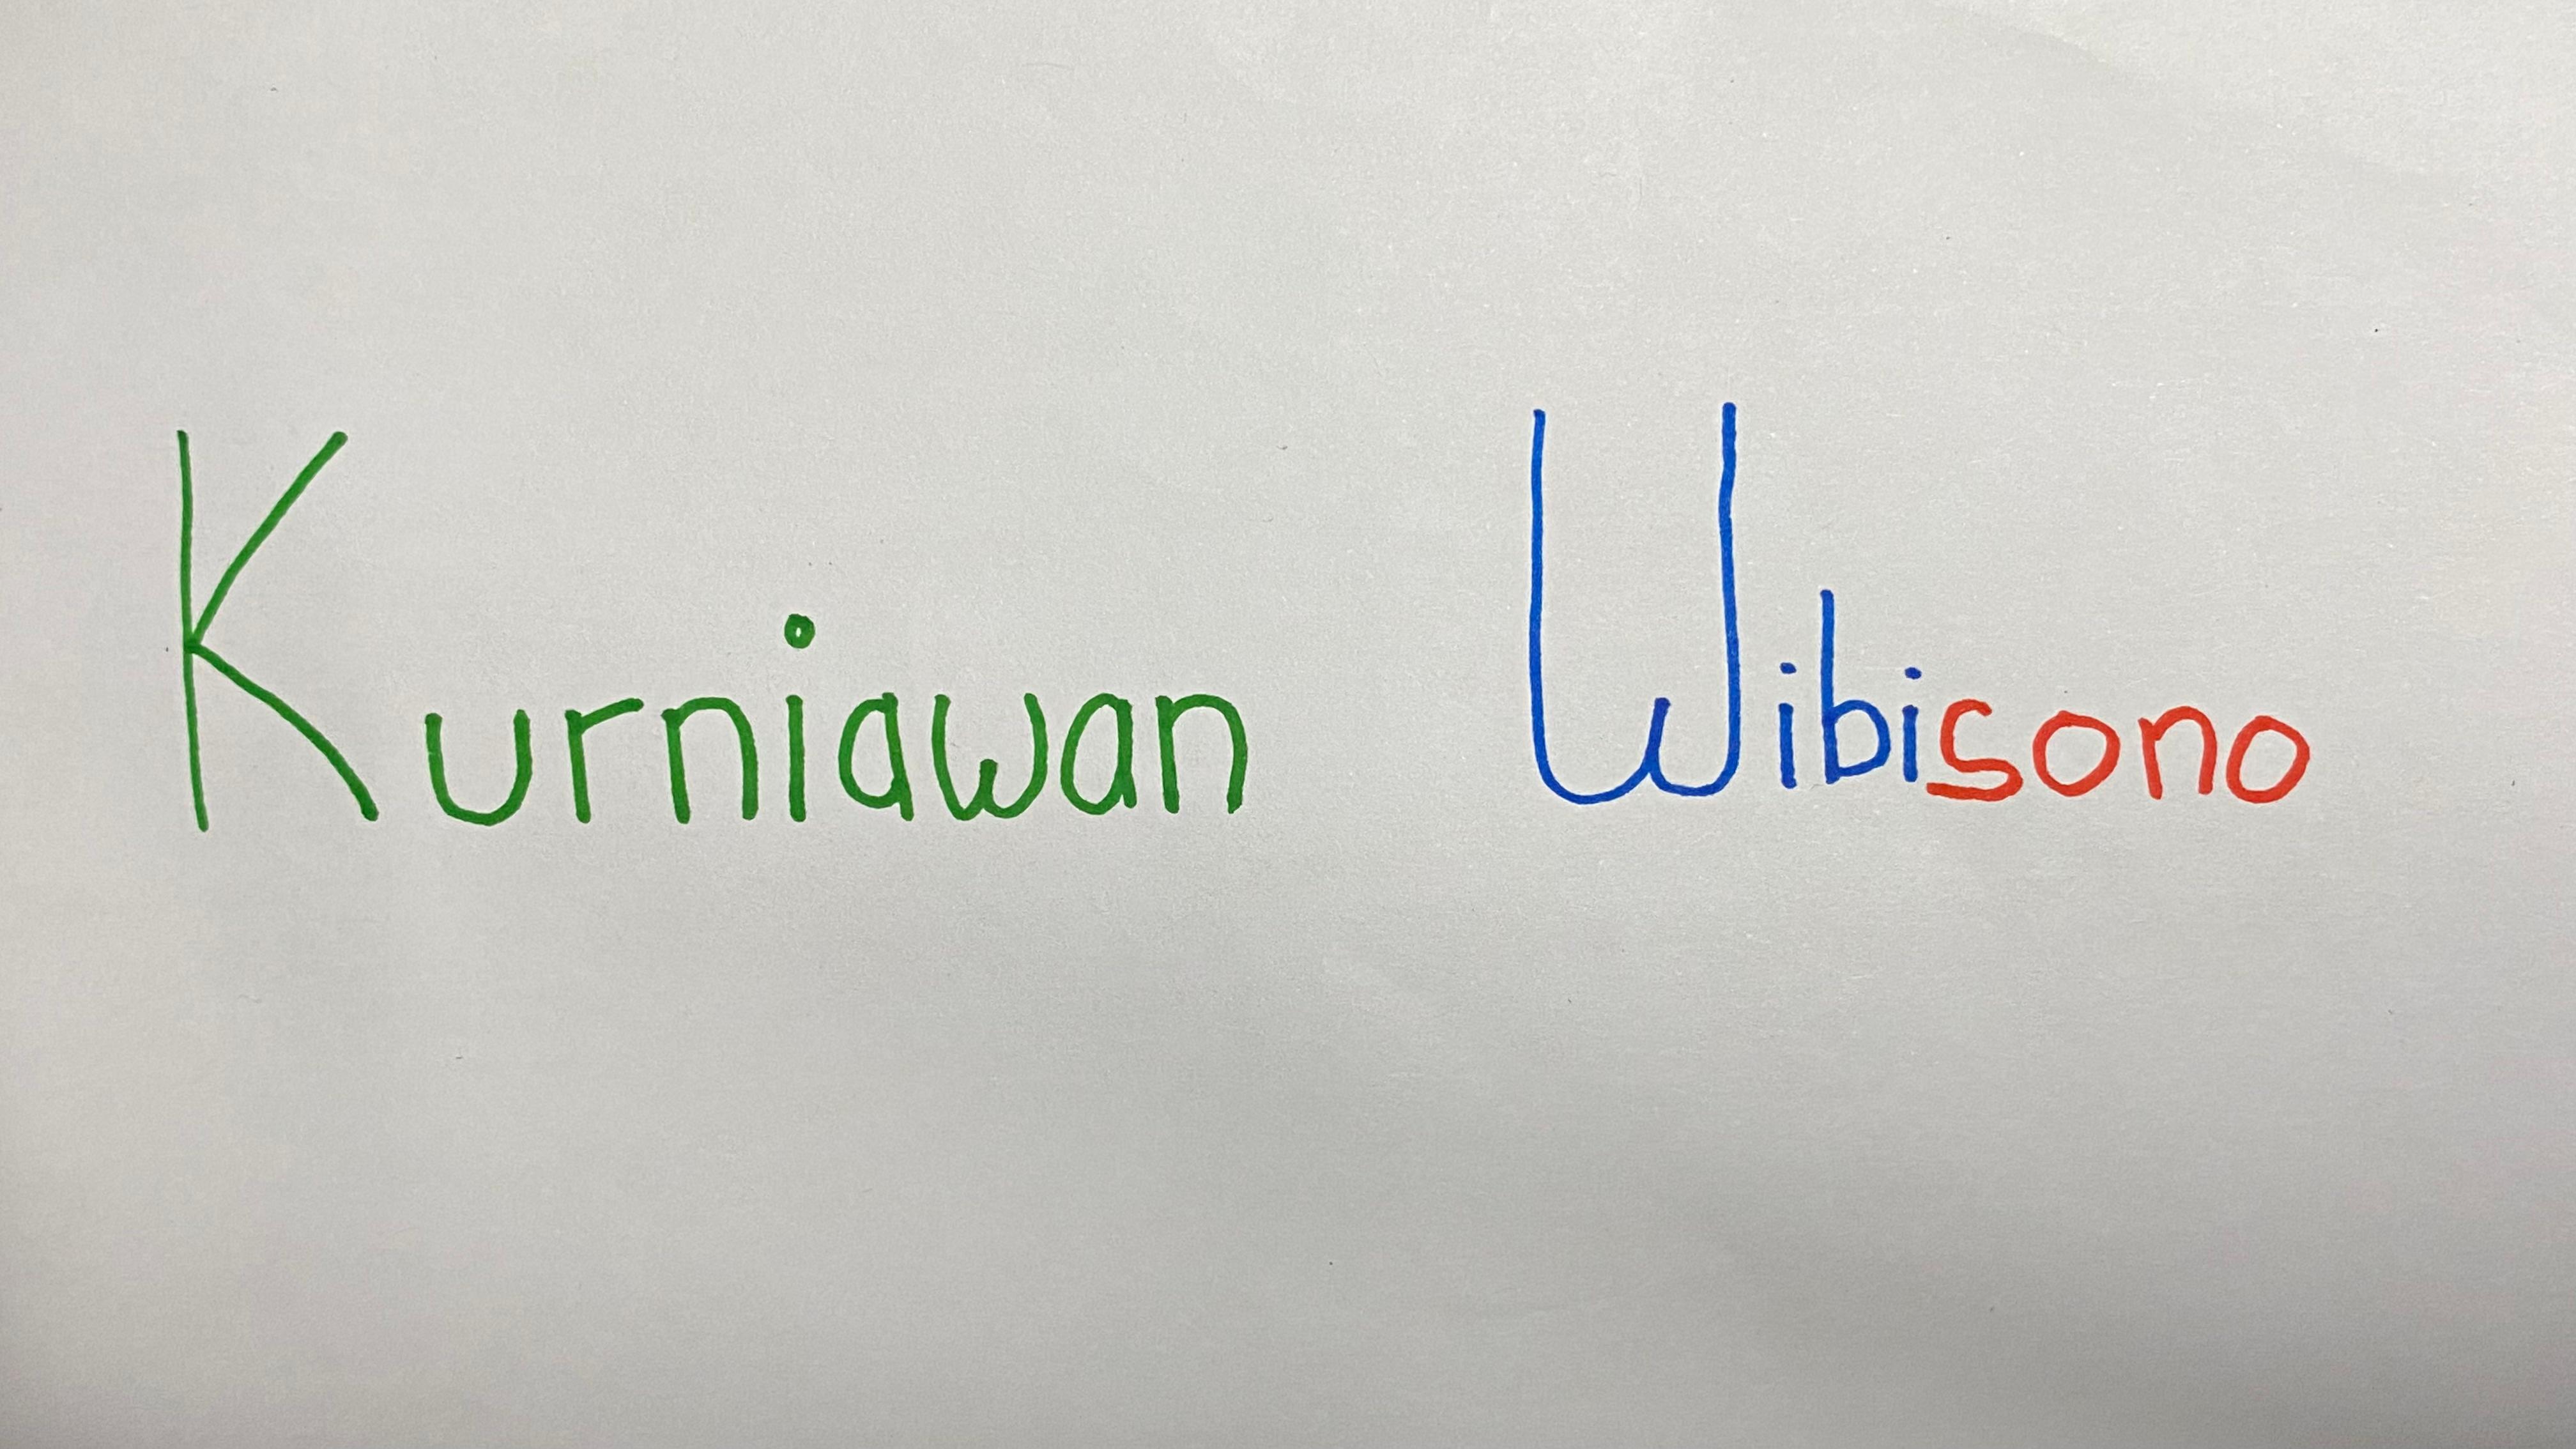 Kurniawan Wibisono